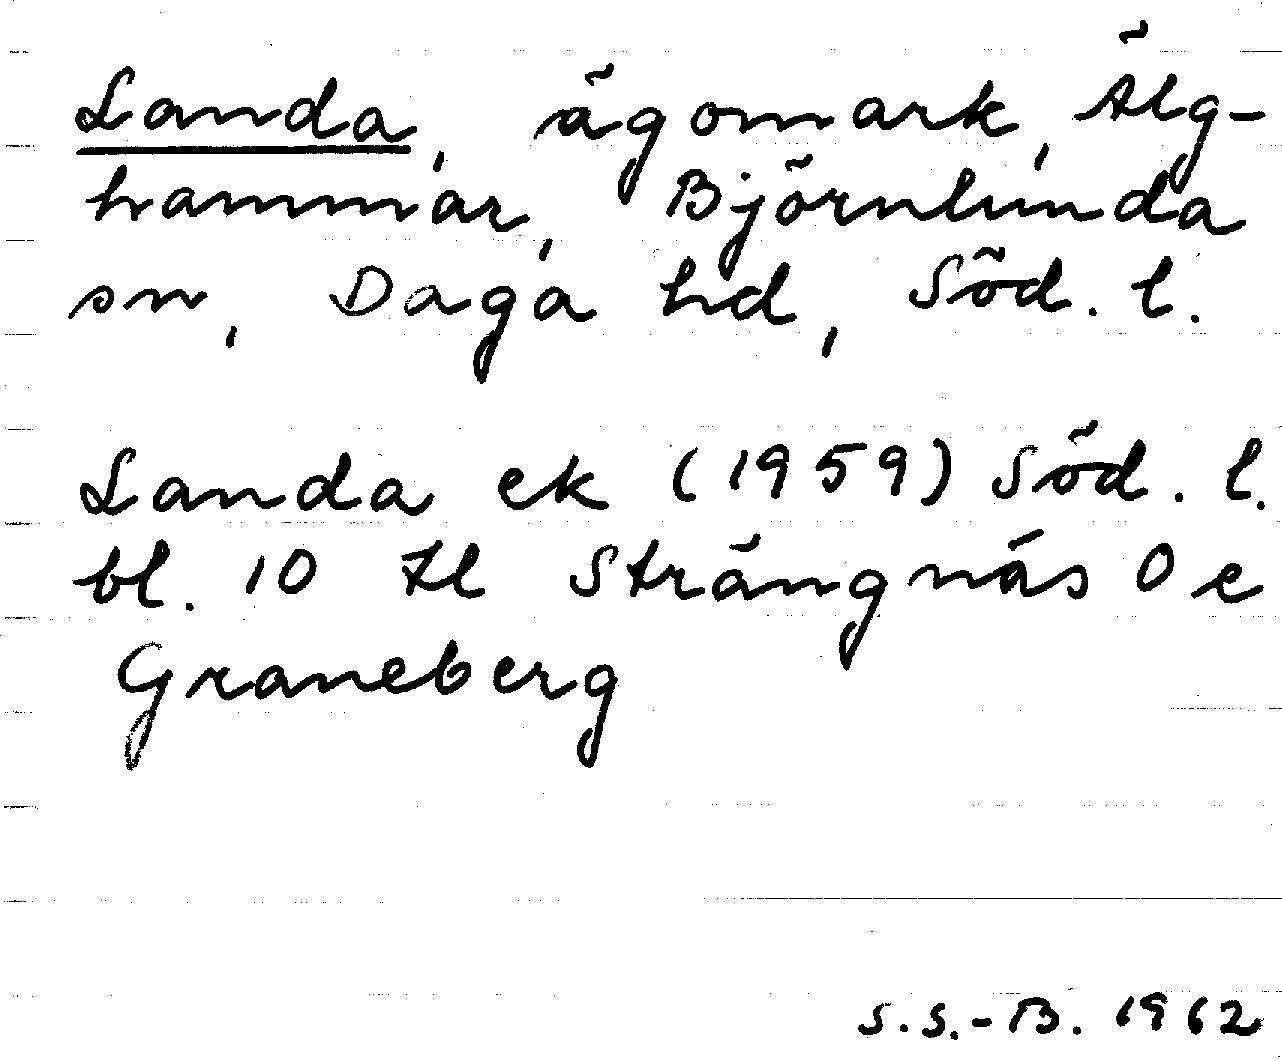 Landa, ägomark, Älg-
hammar, Björnlunda
sn, Daga hd, Söd. l.
Landa ek (1959) Söd. l.
bl. 10 Hl Strängnäs O e
Graneberg
S.S.-B. 1962